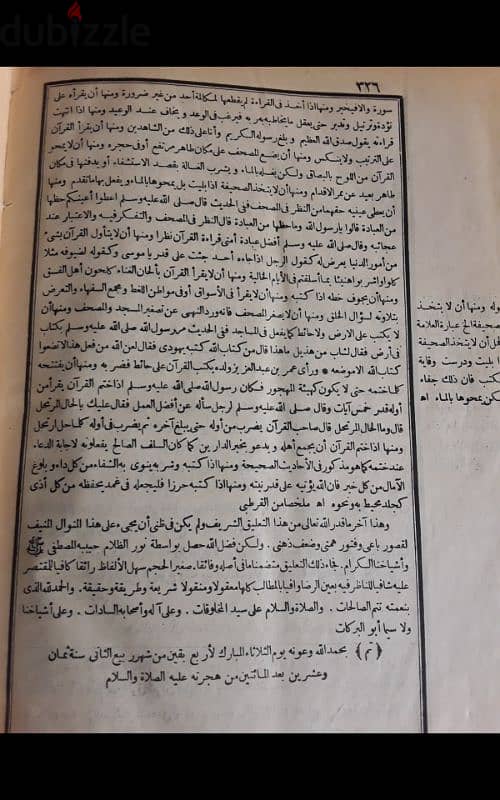 dubizzle
٣٢٦
سورة والا فيخير ومنها اذا أخذ فى القراءة لم يقطعها لمكالمة أحد من غير ضرورة ومنها أن يقرأه على
تؤدة وترتيل وتدبر حتى يعقل ما يخاطبه به ربه فيرغب فى الوعد ويخاف عند الوعيد ومنها اذا انتهت
قراءته يقول صدق الله العظيم وبلغ رسوله الكريم وأنا على ذلك من الشاهدين ومنها أن يقرأ القرآن
على الترتيب ولا ينكس ومنها أن يضع المصحف على مكان طاهر مرتفع أو فى حجره ومنها أن لا يمحو
القرآن من اللوح بالبصاق ولكن يغسله بالماء ويشرب الغسالة بقصد الاستشفاء أو يدفنها فى مكان
طاهر بعيد عن ممر الاقدام ومنها أن لا يتخذ الصحيفة اذا بليت بل يمحوها بالماء ويفعل بها ما تقدم ومنها
أن يعطى عينيه حقهما من النظر فى المصحف فى الحديث قال صلى الله عليه وسلم اعطوا أعينكم حظها
من العبادة قالوا يا رسول الله وما حظها من العبادة قال النظر فى المصحف والتفكر فيه والاعتبار عند
عجائبه وقال صلى الله عليه وسلم أفضل عبادة أمتى قراءة القرآن نظرا ومنها أن لا يتأول القرآن بشئ
من أمور الدنيا يعرض له كقول الرجل اذا جاءه أحد جئت على قدر يا موسى وكقوله لضيوفه مثلا
كلوا واشربوا هنيئا بما أسلفتم فى الأيام الخالية ومنها أن لا يقرأ القرآن بألحان الغناء كلحون أهل الفسق
ومنها أن يجوف خطه اذا كتبه ومنها أن لا يقرأ فى الأسواق أو فى مواطن اللغط ومجمع السفهاء والتعرض
بتلاوته لسؤال الخلق ومنها أن لا يصغر المصحف فانه ورد النهى عن تصغير المسجد والمصحف ومنها أن
لا يكتب على الارض ولا حائط كما يفعل فى المساجد ففى الحديث مر رسول الله صلى الله عليه وسلم بكتاب
فى أرض فقال لشاب من هذيل ما هذا قال من كتاب الله كتبه يهودى فقال لعن الله من فعل هذا لا تضعوا
كتاب الله الا موضعه * ورأى عمر بن عبد العزيز ولده يكتب القرآن على حائط فضربه ومنها أن يفتتحه
كلما ختمه حتى لا يكون كهيئة المهجور فكان رسول الله صلى الله عليه وسلم اذا ختم القرآن يقرأ من
أوله قدر خمس آيات وقال صلى الله عليه وسلم لرجل سأله عن أفضل العمل فقال عليك بالحال المرتحل
قال وما الحال المرتحل قال صاحب القرآن يضرب من أوله حتى يبلغ آخره ثم يضرب فى أوله كلما حل ارتحل
ومنها اذا ختم القرآن أن يجمع أهله ويدعو بخير الدارين كما كان السلف الصالح يفعلونه لاجابة الدعاء
عند ختمه كما هو مذكور فى الأحاديث الصحيحة ومنها اذا كتبه وشربه ينوى به الشفاء من كل داء وبلوغ
الآمال من كل خير فان الله يؤتيه على قدر نيته ومنها اذا كتبه حرزا فليجعله فى غمد يحفظه من كل أذى
كجلد محيط به ونحوه اه ملخصا من القرطبى
وهذا آخر ما قدر الله تعالى من هذا التعليق الشريف ولم يكن فى ظنى أن يجىء على هذا النوال المنيف
لقصور باعى وفتور همتى وضعف ذهنى . ولكن فضل الله حصل بواسطة نور الظلام حبيبه المصطفى صلى الله عليه وسلم
وأشياخنا الكرام . فجاء ذلك التعليق متضمنا معانى أصله وفائقا . صغير الحجم سهل الألفاظ رائقا كافيا للمقتصر
عليه شافيا للناظر فيه بعين الرضا وافيا بالمطالب كلها معقولا ومنقولا شريعة وطريقة وحقيقة . والحمد لله الذى
بنعمته تتم الصالحات . والصلاة والسلام على سيد المخلوقات . وعلى آله وأصحابه السادات . وعلى أشياخنا
ولا سيما أبو البركات
﴿ تم ﴾ بحمد الله وعونه يوم الثلاثاء المبارك لأربع بقين من شهر ربيع الثانى سنة ثمان
وعشرين بعد المائتين من هجرته عليه الصلاة والسلام
وله ومنها أن لا يتخذ
صحيفة الخ عبارة العلامة
أن لا يتخذ الصحيفة
بليت ودرست وقاية
كتب فان ذلك جفاء
كن يمحوها بالماء اه